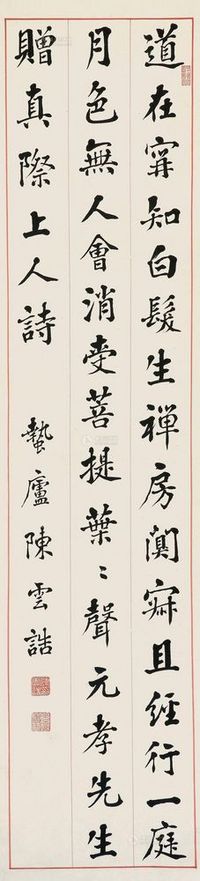 道在寧知白髮生禪房闃寂且經行一庭
月色無人會消受菩提葉〻聲元孝先生
贈真際上人詩　蟄廬陳雲誥